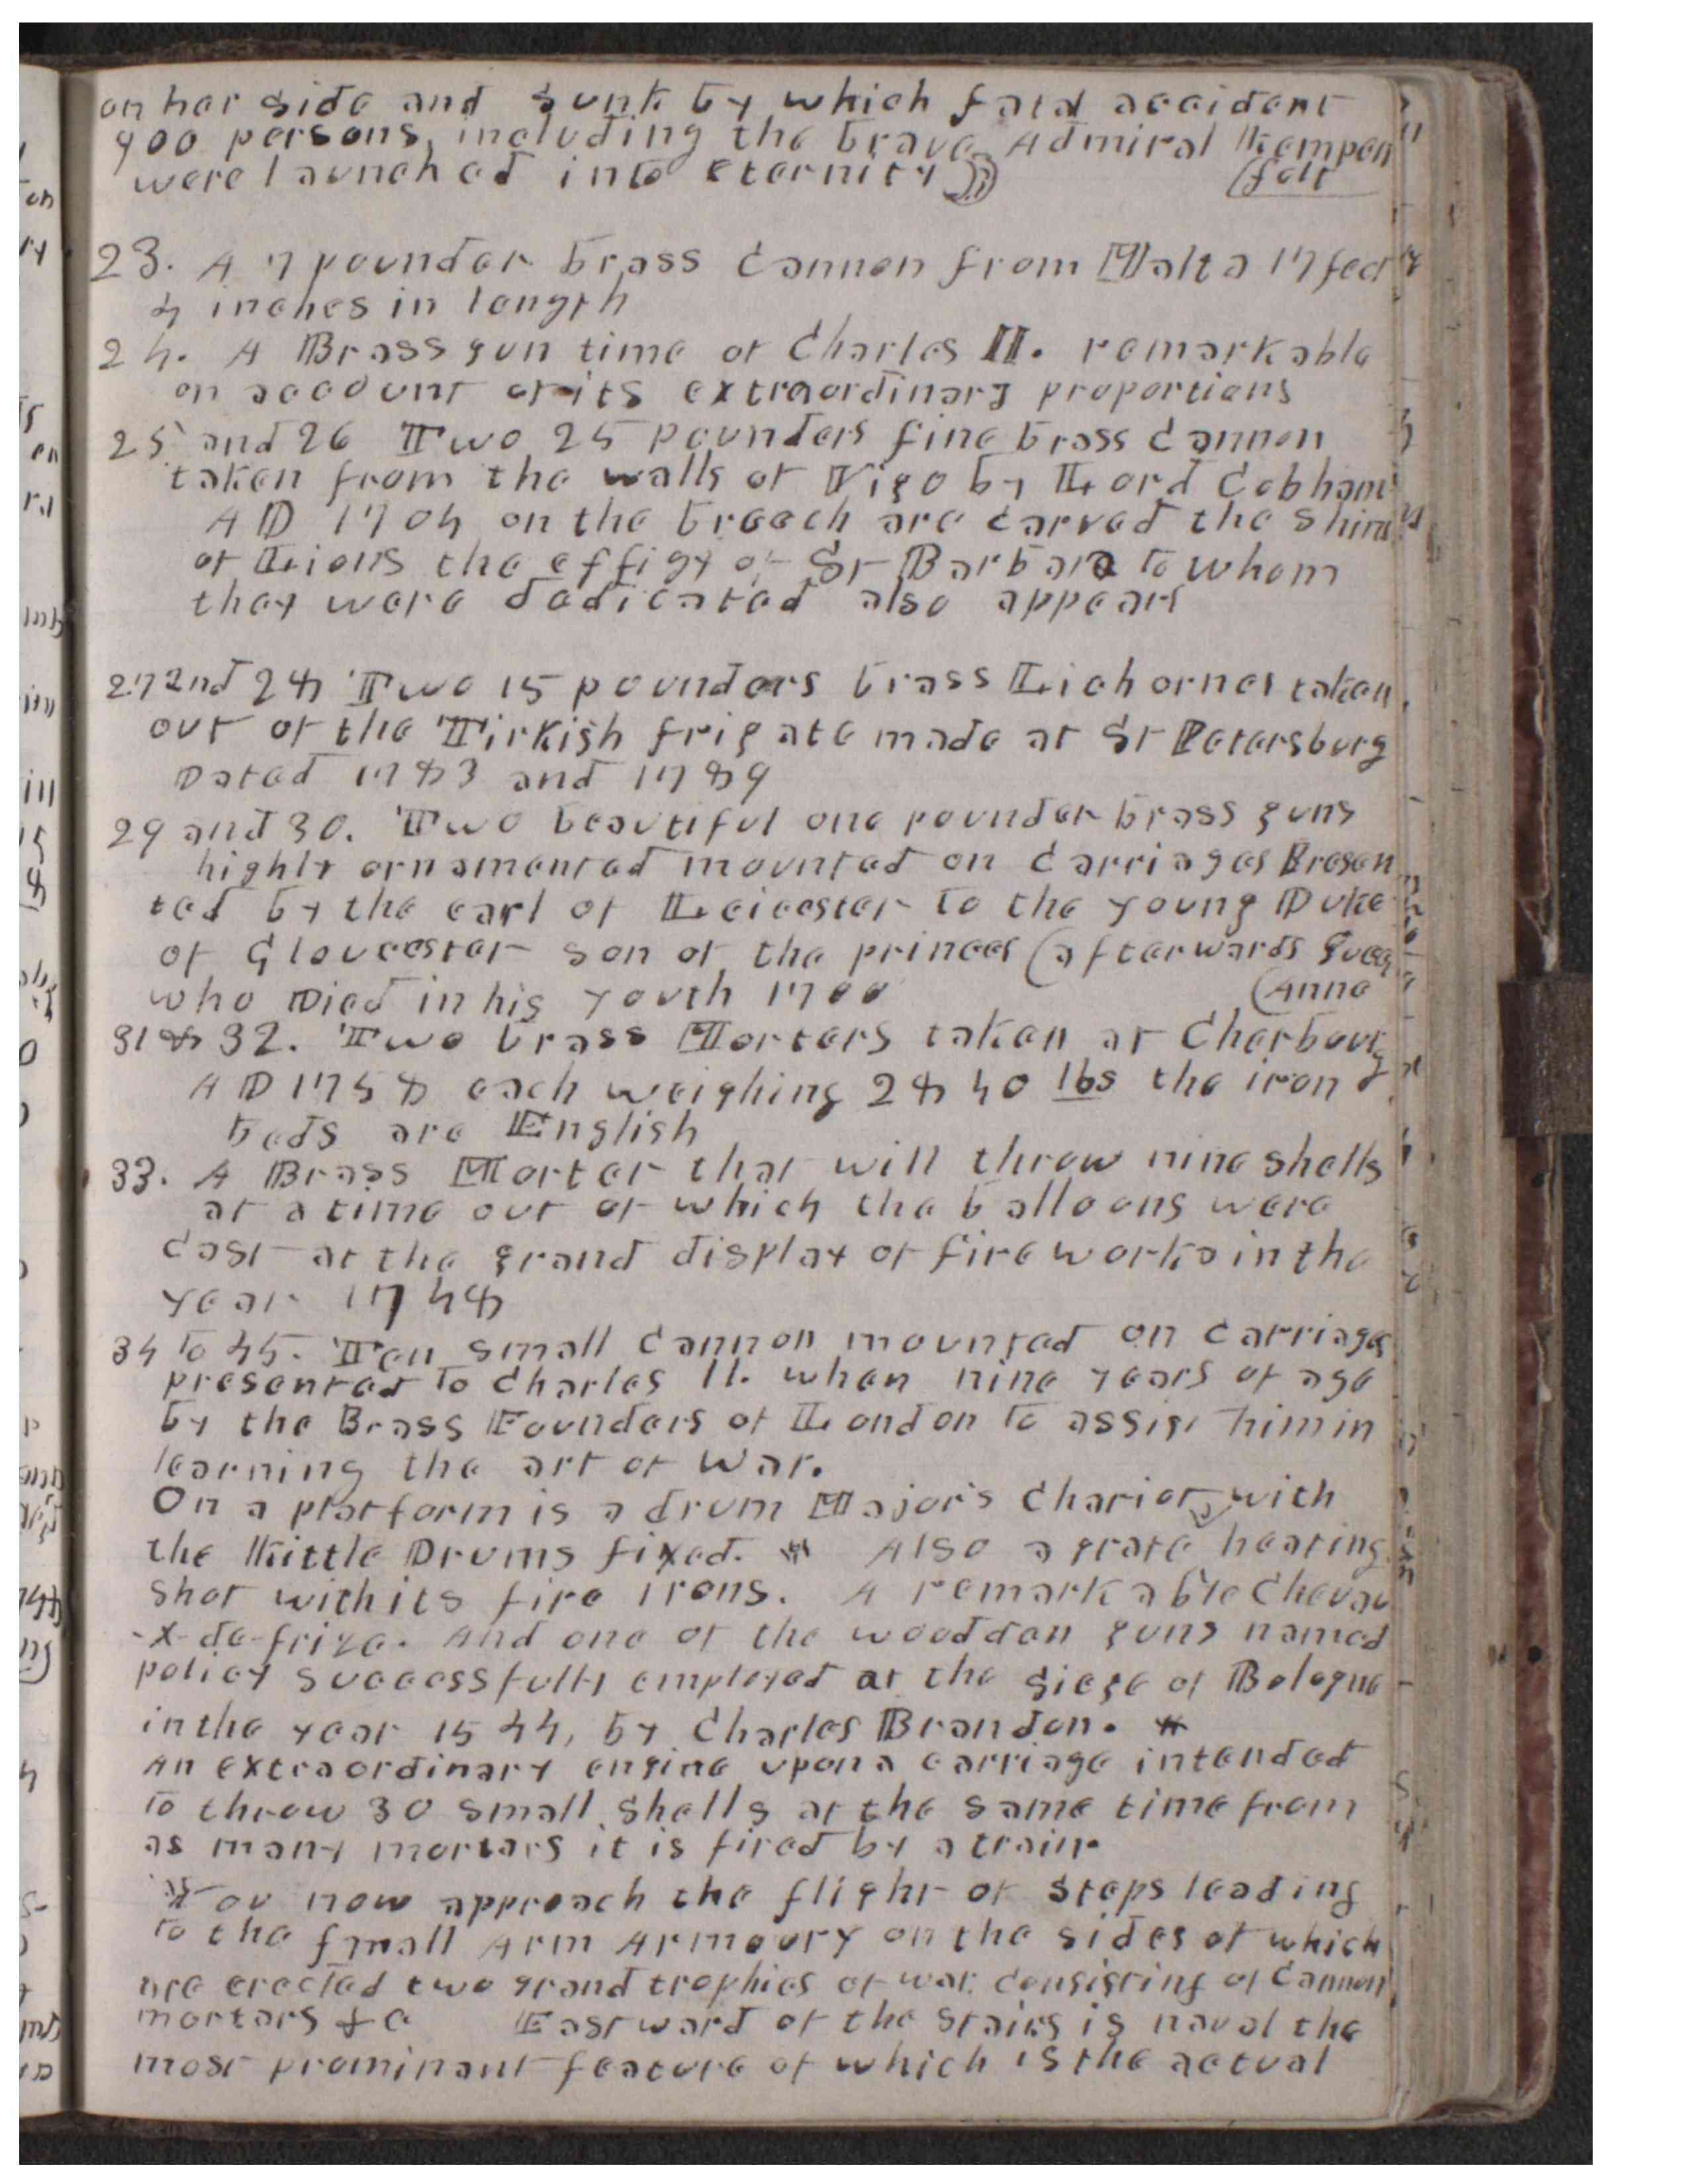 on her side and sunk by which fatal accident
900 persons, including the brave Admiral Kempen
were launched into eternity
(felt
23. A 7 pounder brass Cannon from Malta 17 feet
4 inches in length
24. A Brass gun time of Charles II. remarkable
on account of its extraordinary proportions
25 and 26 Two 25 pounders fine brass Cannon
taken from the walls of Vigo by Lord Cobham
A D 1704 on the breech are carved the
of Lions the effigy of St Barbara to whom
they were dedicated also appears
27 and 28 Two 15 pounders brass Lichornes taken
out of the Tirkish frigate made at St Petersburg
Dated 1783 and 1789
29 and 30. Two beautiful one pounder brass guns
highly ornamented mounted on Carriages Presen
ted by the earl of Leicester to the young Duke
of Gloucester son of the princes (afterwards Queen
who Died in his youth 1700
(Anne
31 & 32. Two brass Morters taken at Cherbourg
A D 1758 each weighing 2840 lbs the iron
beds are English
33. A Brass Morter that will throw nine shells
at a time out of which the balloons were
Cast at the grand display of fire works in the
year 1748
34 to 45. Ten small Cannon mounted on Carriages
presented to Charles II. when nine years of age
by the Brass Founders of London to assist him in
learning the art of War.
On a platform is a drum Major's Chariot with
the Kittle Drums fixed. * Also a grate heating
Shot with its fire Irons. A remarkable Chevau
-x-de-frize. And one of the woodden guns named
policy successfully employed at the Siege of Bologne
in the year 1544, by Charles Brandon. *
An extraordinary engine upon a carriage intended
to throw 30 small shells at the same time from
as many mortars it is fired by a train.
You now approach the flight of steps leading
to the small Arm Armoury on the sides of which
are erected two grand trophies of war. Consisting of Cannon
mortars & c Eastward of the Stairs is naval the
most prominant feature of which is the actual